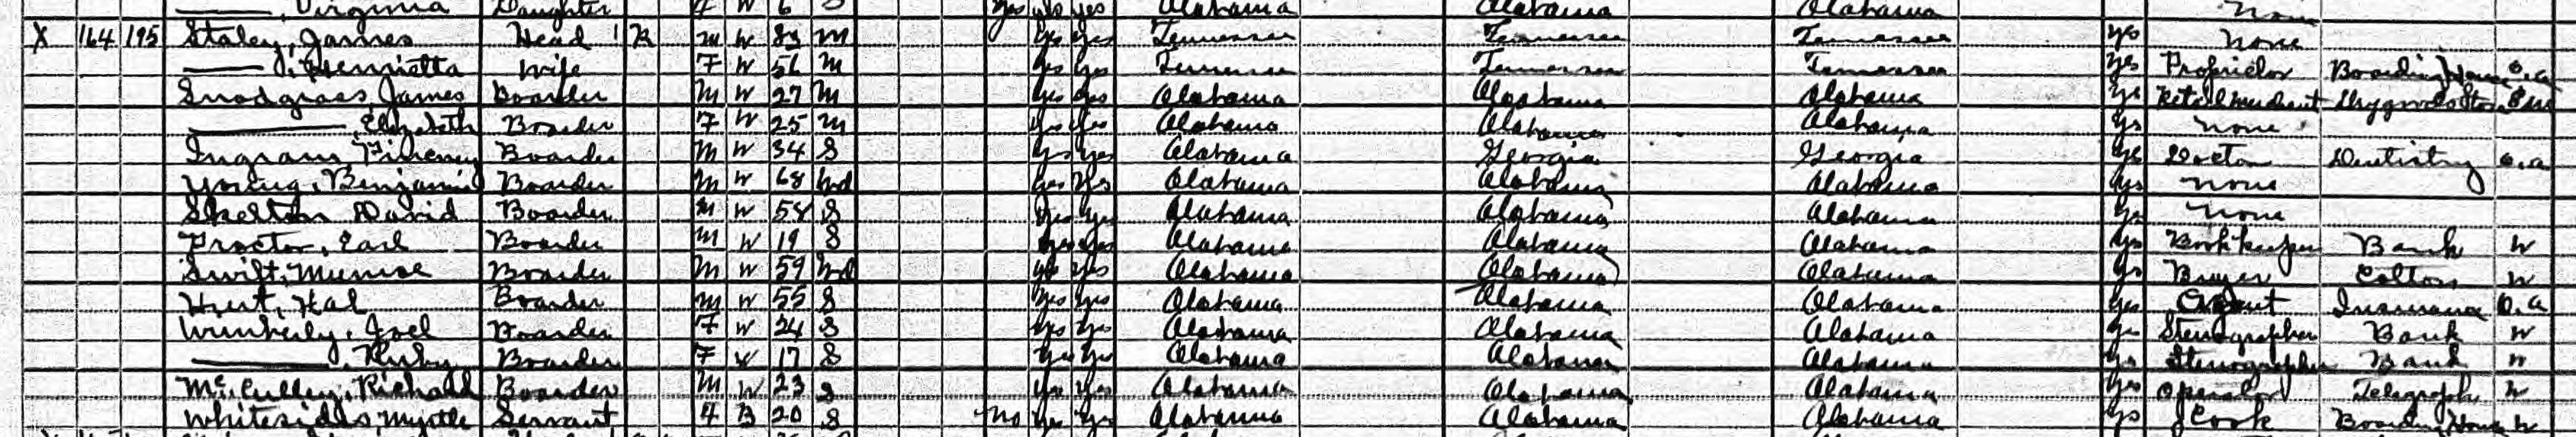 ——, Virginia Daughter F W 6 S Yes yes yes Alabama Alabama Alabama None
X 164 195 Staley, James Head R M W 83 M Yes yes Tennessee Tennessee Tennessee yes None
——, Henrietta Wife F W 56 M Yes Yes Tennessee Tennessee Tennessee Yes Proprietor Boarding House O.A
Snodgrass, James Boarder M W 27 M Yes Yes Alabama Alabama Alabama Yes Retail merchant Drygoods Store Em
——, Elizabeth Boarder F W 25 M Yes Yes Alabama Alabama Alabama Yes None
Ingram, Boarder M W 34 S Yes Yes Alabama Georgia Georgia Yes Doctor Dentistry O.A
Young, Benjamin Boarder M W 68 Wd Yes Yes Alabama Alabama Alabama Yes None
Skelton David Boarder M W 58 S Yes Yes Alabama Alabama Alabama Yes None
Proctor, Earl Boarder M W 19 S Yes Yes Alabama Alabama Alabama Yes Bookkeeper Bank W
Swift, Munroe Boarder M W 59 Wd Yes Yes Alabama Alabama Alabama Yes Buyer Cotton W
Hurt, Hal Boarder M W 55 S Yes Yes Alabama Alabama Alabama Yes Agent Insurance O.A
Wimberly, Joel Boarder F W 24 S Yes Yes Alabama Alabama Alabama Yes Stenographer Bank W
——, Ruby Boarder F W 17 S Yes Yes Alabama Alabama Alabama Yes Stenographer Bank W
McCulley, Richard Boarder M W 23 S Yes Yes Alabama Alabama Alabama Yes Operator Telegraph W
Whitesides, Myrtle Servant F B 20 S No Yes Yes Alabama Alabama Alabama Yes Cook Boarding House W